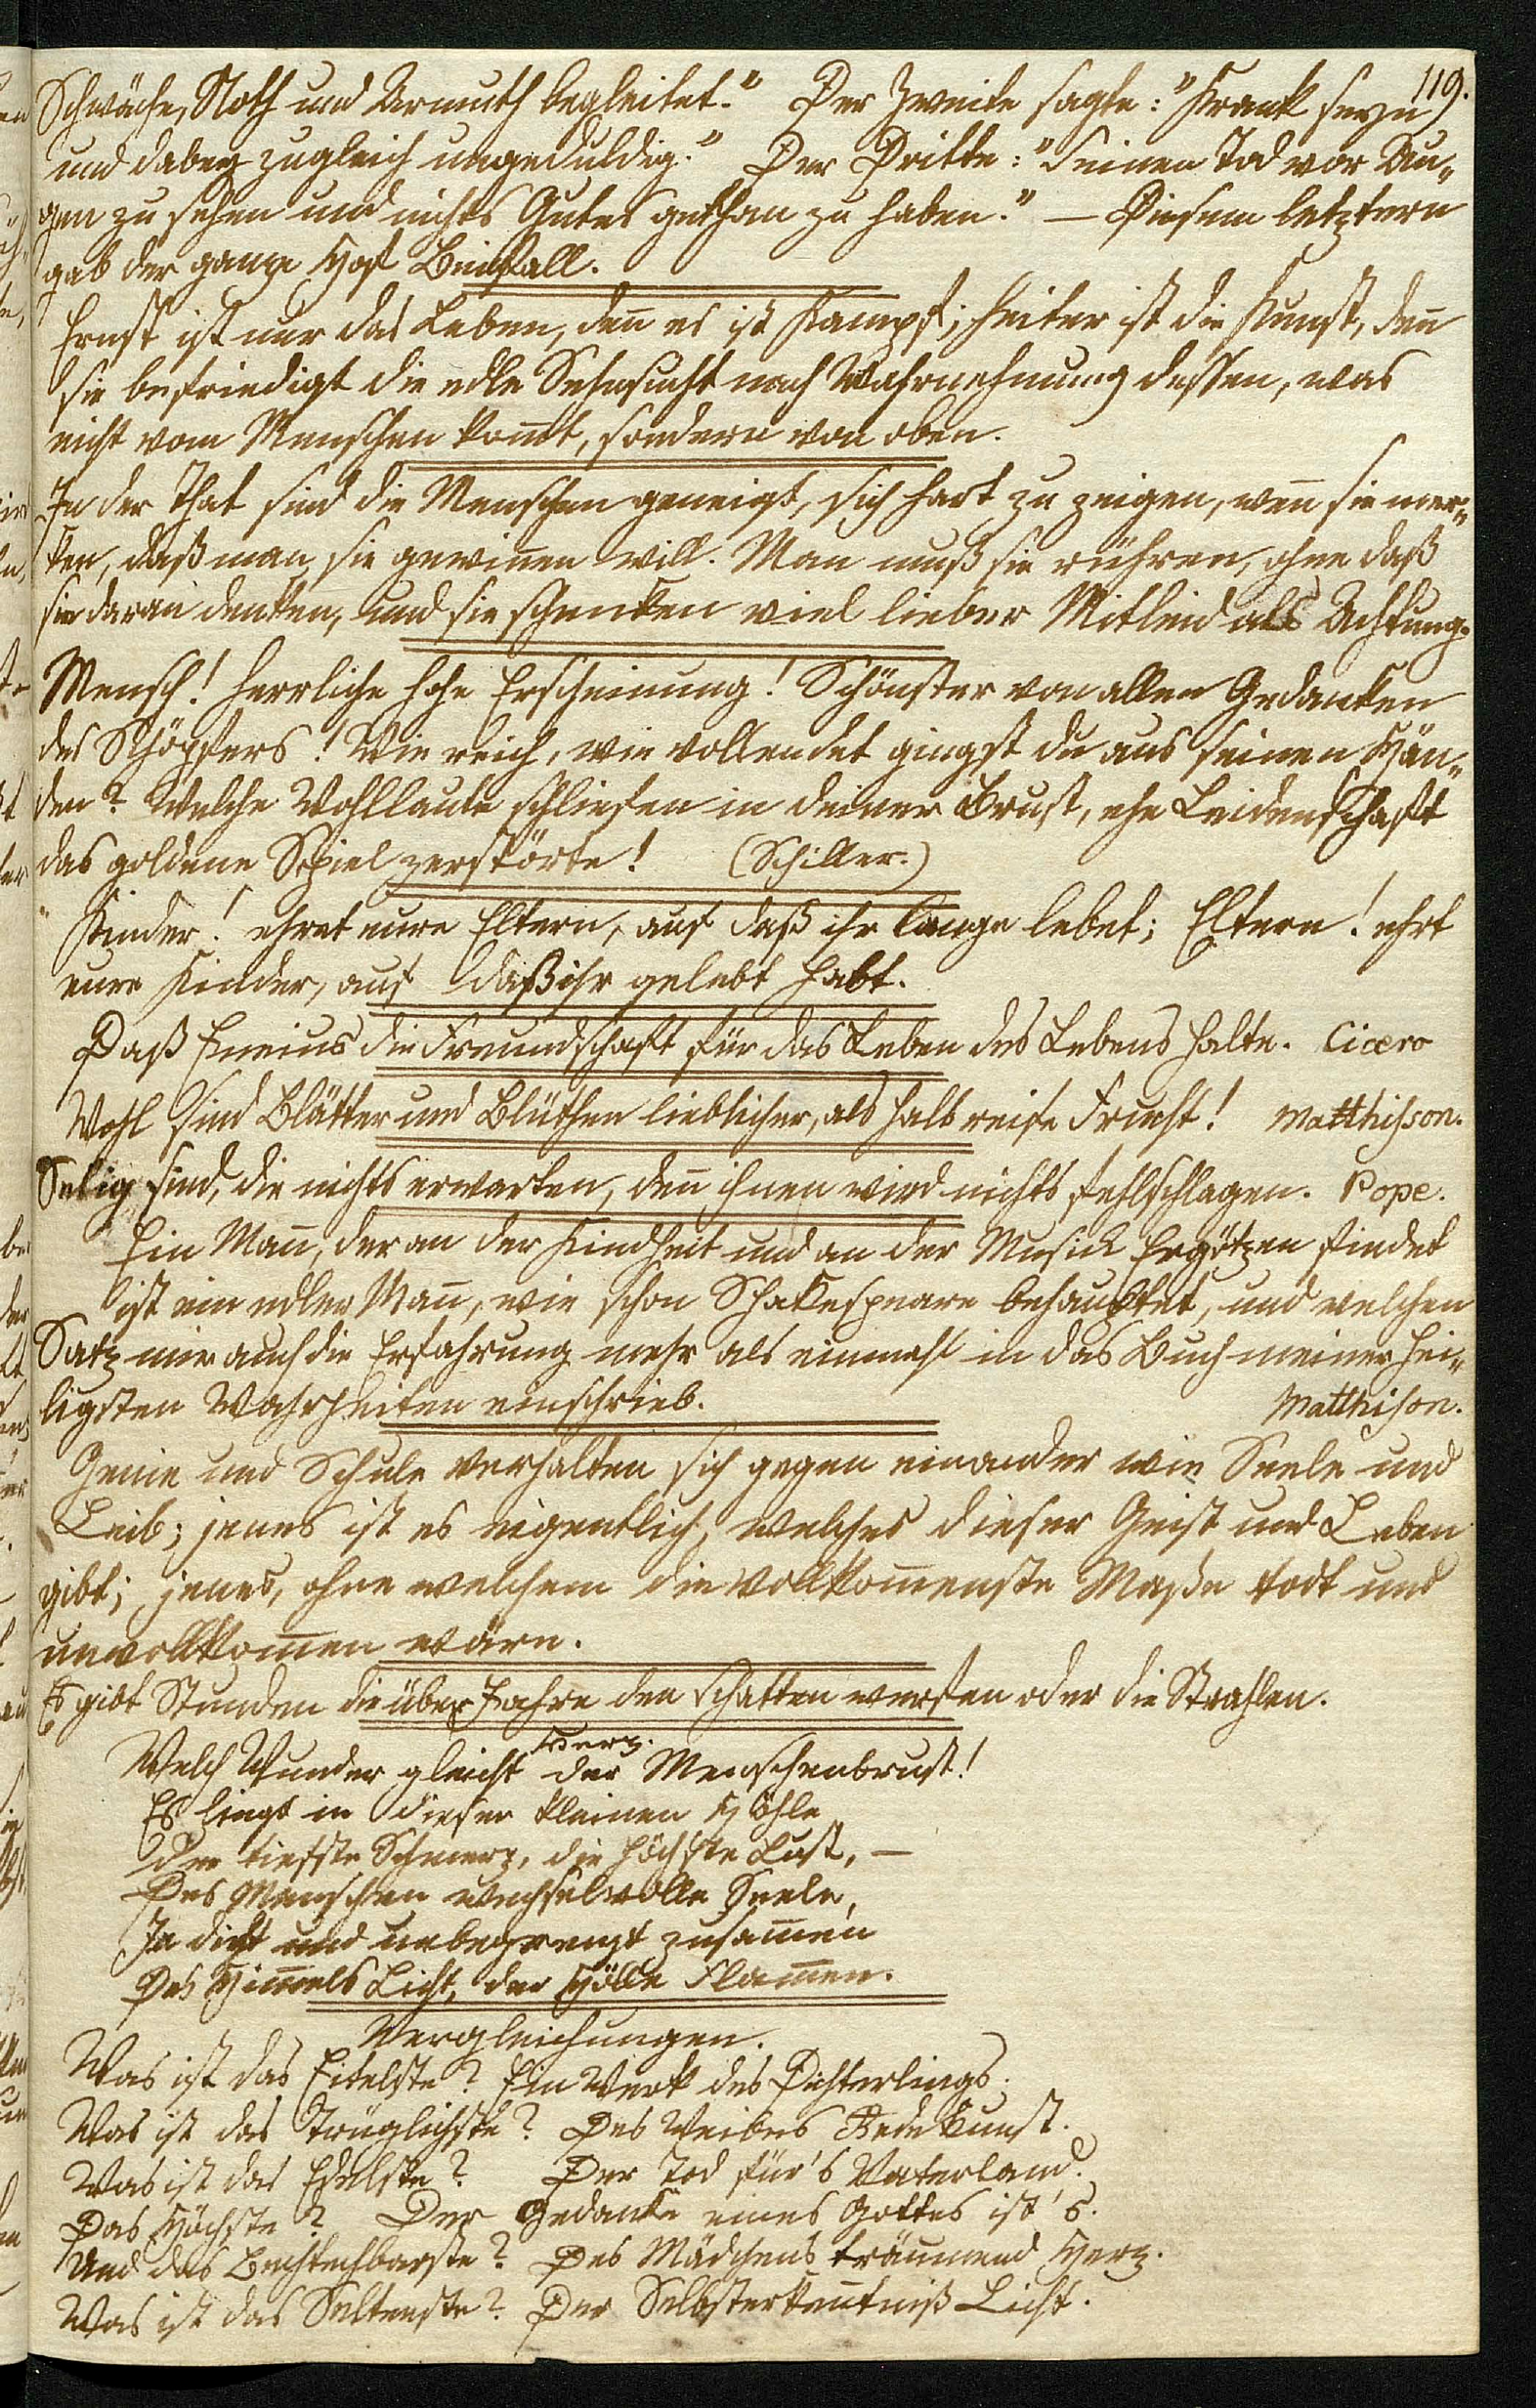 119.
Schwäche, Noth und Armuth begleitet." Der Zweite sagte: "Krank seyn
und dabey zugleich ungeduldig." Der Dritte: "Seinen Tod vor Au„
gen zu sehen und nichts Gutes gethan zu haben." — Diesem letztern
gab der ganze Hof Beifall.
Ernst ist nur das Leben, deñ es ist Kampf; heiter ist die Kunst, deñ
sie befriedigt die edle Sehnsucht nach Wahrnehmung dessen, was
nicht vom Menschen kom̄t, sondern von oben.
In der That sind die Menschen geneigt, sich hart zu zeigen, weñ sie mer„
ken, daß man sie gewiñen will. Man muß sie rühren, ohne daß
sie daran denken, und sie schenken viel lieber Mitleid als Achtung.
Mensch! herrliche hohe Erscheinung! Schönster von allen Gedanken
des Schöpfers! Wie reich, wie vollendet gingst du aus seinen Hän„
den? Welche Wohllaute schliefen in deiner Brust, ehe Leidenschaft
das goldene Spiel zerstörte! (Schiller.)
Kinder! ehret eure Eltern, auf daß ihr lange lebet; Eltern! ehrt
eure Kinder, auf daß ihr gelebt habt.
Daß Ennius die Freundschaft für das Leben des Lebens halte. Cicero
Wohl sind Blätter und Blüthen lieblicher, als halb reife Frucht! Matthisson.
Selig sind, die nichts erwarten, deñ ihnen wird nichts fehlschlagen. Pope.
Ein Mañ, der an der Kindheit und an der Musick Ergötzen findet
ist ein edler Mañ, wie schon Schakespeare behauptet, und welchen
Satz mir auch die Erfahrung mehr als einmahl in das Buch meiner hei„
ligsten Wahrheiten einschrieb. Matthison.
Genie und Schule verhalten sich gegen einander wie Seele und
Leib; jenes ist es eigentlich, welches dieser Geist und Leben
gibt; jenes, ohne welchem die vollkom̄enste Maße todt und
unvollkom̄en wäre.
Es gibt Stunden die über Jahre den Schatten werfen oder die Strahlen.
Herz.
Welch Wunder gleicht der Menschenbrust!
Es liegt in dieser kleinen Höhle
Der tiefste Schmerz, die höchste Lust, —
Des Menschen wechselvolle Seele,
In dicht und unbegrenzt zusam̄en
Des Him̄els Licht, der Hölle Flam̄en.
Vergleichungen.
Was ist das Eitelste? Ein Werk des Dichterlings.
Was ist das Trüglichste? Des Weibes Redekunst.
Was ist das Edelste? Der Tod für's Vaterland.
Das Höchste? Der Gedanke eines Gottes ist's.
Und das Bestechbarste? Des Mädchens träumend Herz.
Was ist das Seltenste? Der Selbsterkeñtniß Licht.